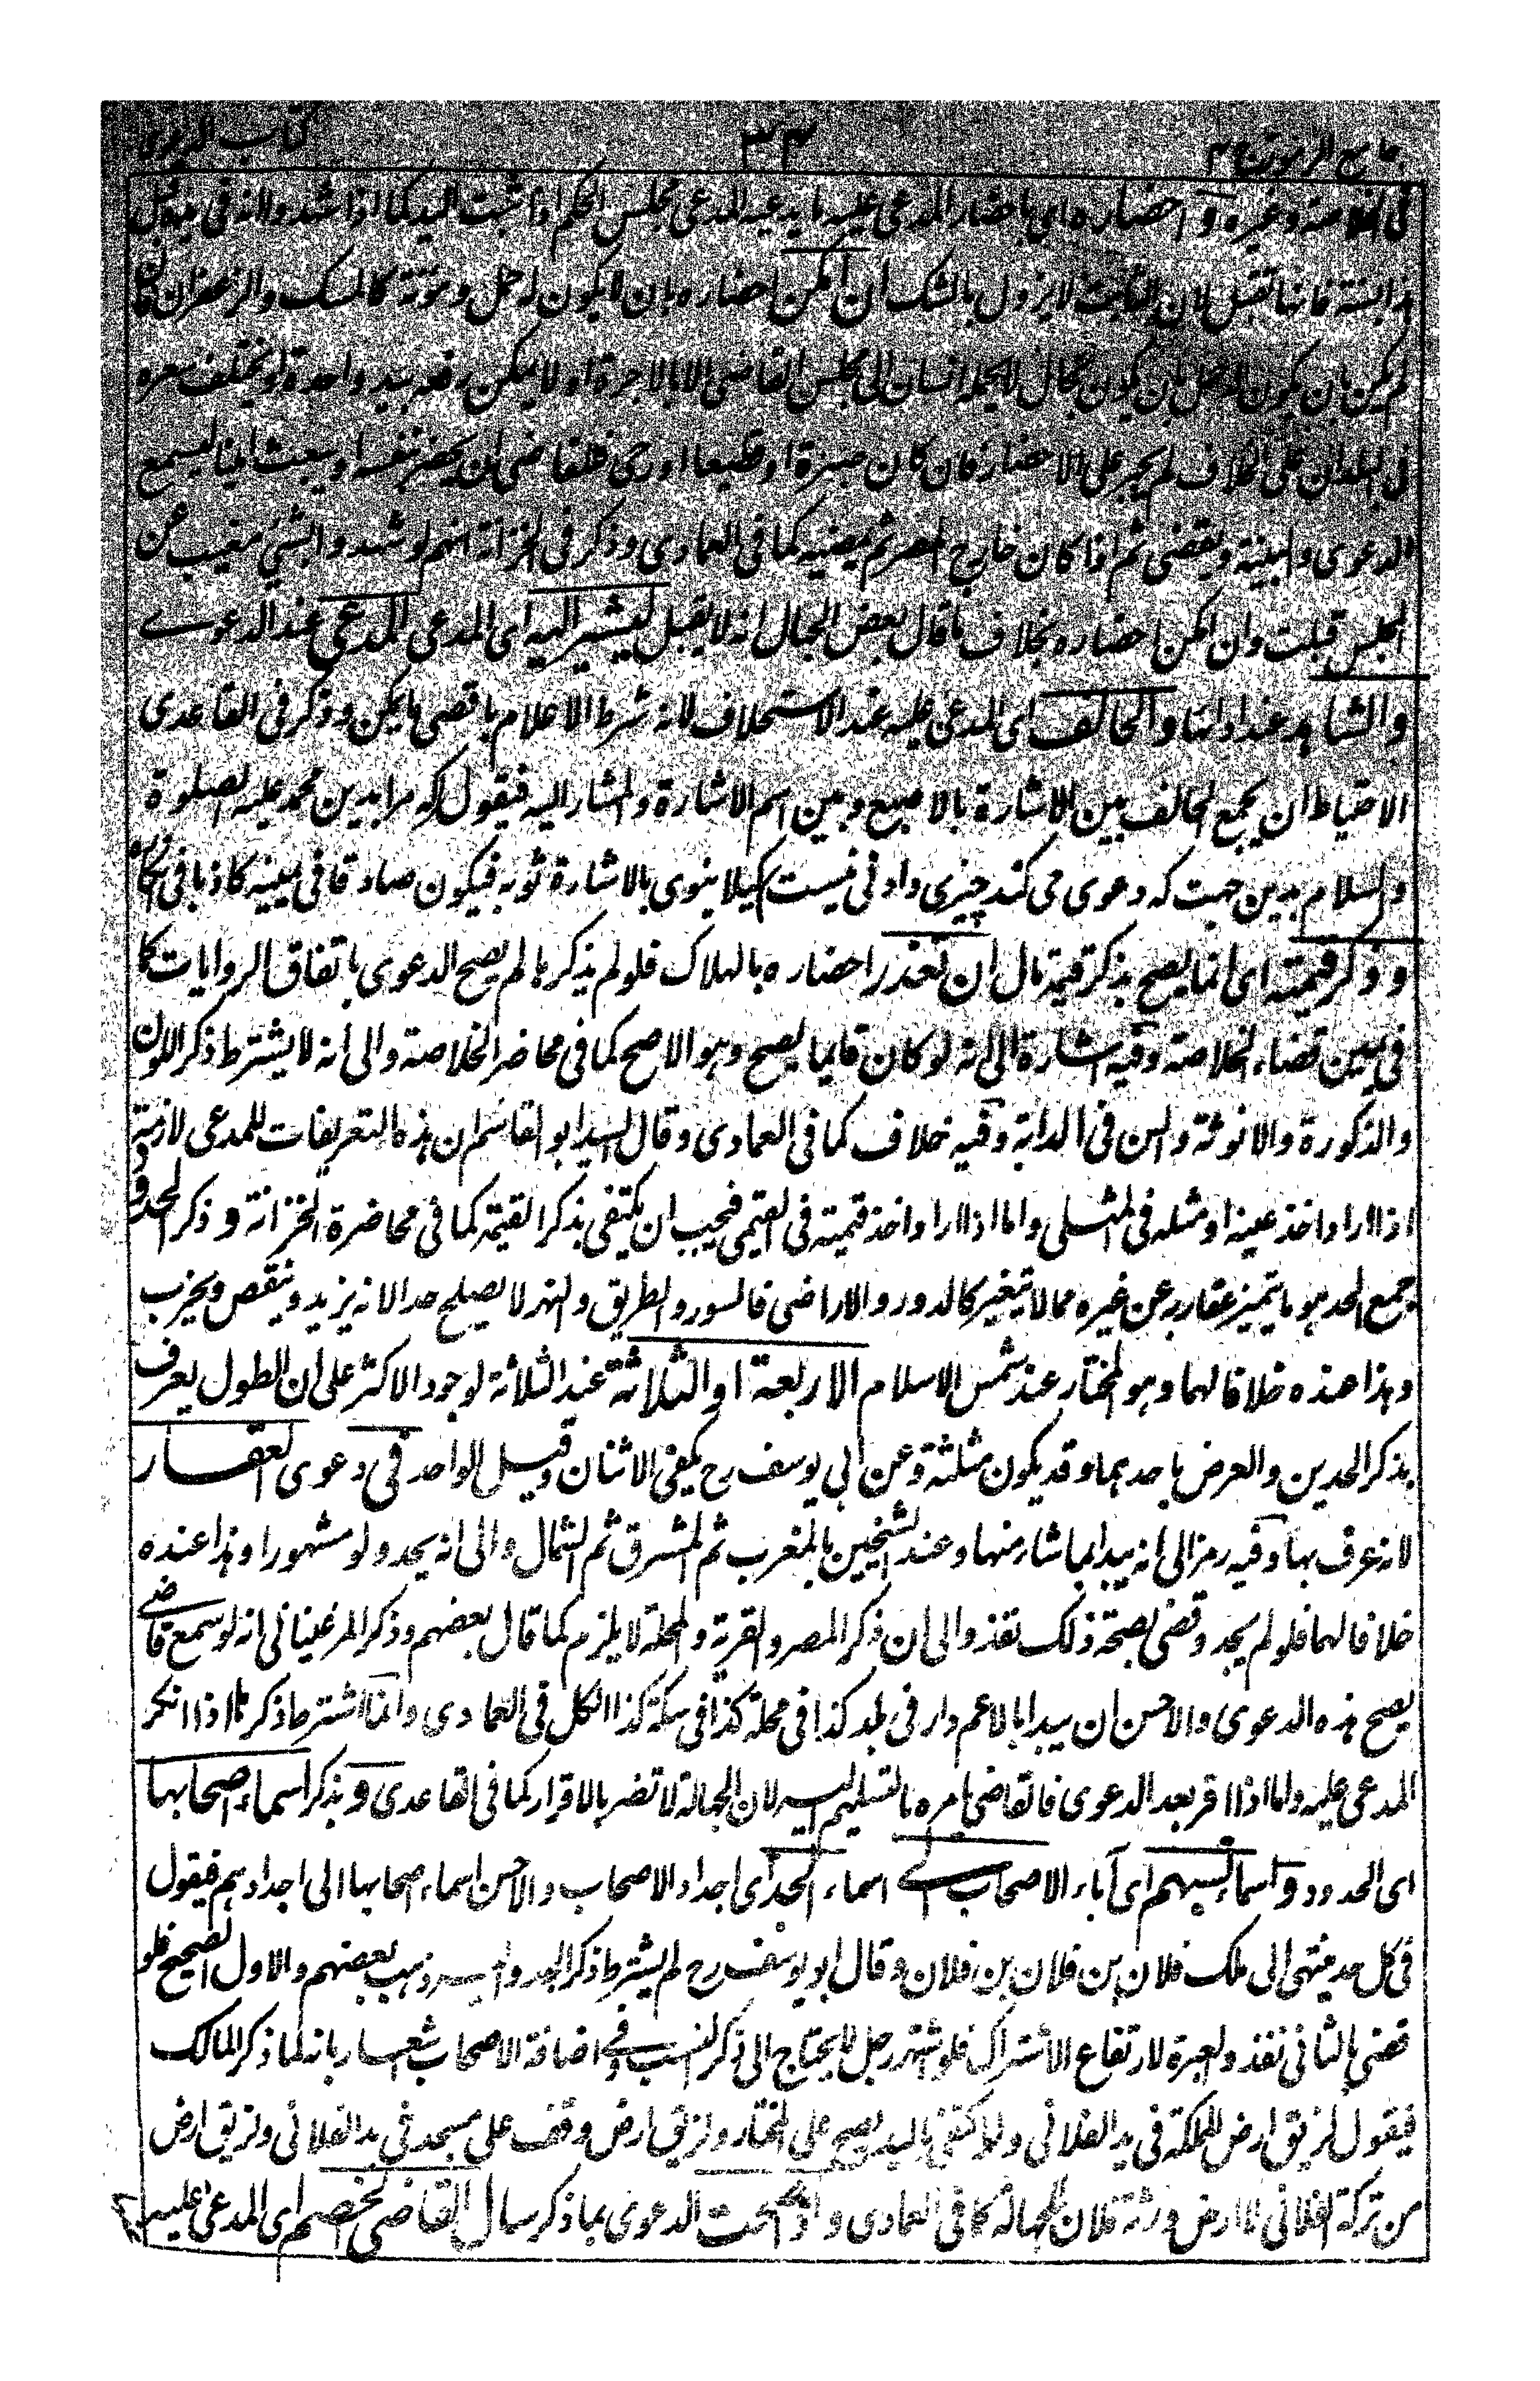 جامع الرموز ج ٢ ٣٣ كتاب الدعوى
فى الخلاصة وغيره و احضاره اى باحضار المدعى عليه ما يدعيه المدعى مجلس الحكم اذا ثبت اليد كما اذا شهدوا انه فى يده قبل
هذا بسنة فانها تقبل لان الثابت لا يزول بالشك ان امكن احضاره بان لا يكون له حمل ومؤنة كالمسك والزعفران فان
لم يكن بان يكون له حمل بان يكون بحال لا يحمله انسان الى مجلس القاضى الا بالاجرة او لا يمكن رفعه بيد واحدة او يختلف سعره
فى البلدان على الخلاف لم يجبر على الاحضار فان كان صبرة او قطيعا او رحى فللقاضى ان يحضر بنفسه او يبعث امينا ليسمع
الدعوى والبينة ويقضى ثم اذا كان خارج المصر ثم يمضيه كما فى العمادى وذكر فى الخزانة انهم لو شهدوا بشئ مغيب عن
المجلس قبلت وان امكن احضاره بخلاف ما قال بعض الجهال انه لا يقبل ليشير اليه اى المدعى المدعى عند الدعوے
والشاهد عند ادائها والحالف اى المدعى عليه عند الاستحلاف لانه شرط الاعلام باقصى ما يمكن وذكر فى القاعدى
الاحتياط ان يجمع الحالف بين الاشارة بالاصبع وبين اسم الاشارة والمشار اليه فيقول كه مرا بدين محمد عليه الصلوة
والسلام بدين جهت كه دعوى مى كند چيزى دادنى نيست كيلا ينوى بالاشارة ثوبه فيكون صادقا فى يمينه كاذبا فى انكاره
و ذكر قيمته اى انما يصح بذكر قيمة مال ان تعذر احضاره بالهلاك فلو لم يذكرها لم يصح الدعوى باتفاق الروايات كما
فى يمين قضاء الخلاصة وفيه اشارة الى انه لو كان قايما يصح وهو الاصح كما فى محاضر الخلاصة والى انه لا يشترط ذكر اللون
والذكورة والانوثة والسن فى الدابة وفيه خلاف كما فى العمادى وقال السيد ابو القاسم ان هذه التعريفات للمدعى لازمة
اذا اراد اخذ عينه او مثله فى المثلى واما اذا اراد اخذ قيمته فى القيمى فيجب ان يكتفى بذكر القيمة كما فى محاضرة الخزانة و ذكر الحدود
جمع الحد هو ما يتميز عقار به عن غيره مما لا يتغير كالدور والاراضى فالسور والطريق والنهر لا يصلح حدا لانه يزيد وينقص ويخرب
وهذا عنده خلافا لهما وهو المختار عند شمس الاسلام الاربعة او الثلاثة عند الثلاثة لوجود الاكثر على ان الطول يعرف
بذكر الحدين والعرض باحدهما وقد يكون مثلثة وعن ابى يوسف رح يكفى الاثنان وقيل الواحد فى دعوى العقار
لانه عرف بها وفيه رمز الى انه يبدأ بما شاء منها وعند الشيخين بالمغرب ثم المشرق ثم الشمال والى انه يحد ولو مشهورا وهذا عنده
خلافا لهما فلو لم يحد وقضى بصحة ذلك نفذ والى ان ذكر المصر والقرية والمحلة لا يلزم كما قال بعضهم وذكر المرغينانى انه لو سمع قاضى
يصح هذه الدعوى والاحسن ان يبدا بالاعم دار فى بلد كذا فى محلة كذا فى سكة كذا الكل فى العمادى وانما اشترط ذكرها اذا انكر
المدعى عليه واما اذا اقر بعد الدعوى فالقاضى يامره بالتسليم اليه لان الجهالة لا تضر بالاقرار كما فى القاعدى و بذكر اسماء اصحابها
اى الحدود و اسماء نسبهم اى آباء الاصحاب الى اسماء الجد اى اجداد الاصحاب والاحسن اسماء اصحابها الى اجدادهم فيقول
فى كل حد منتهى الى ملك فلان بن فلان بن فلان وقال ابو يوسف رح لم يشترط ذكر الجد واليه ذهب بعضهم والاول الصحيح فلو
قضى بالثانى نفذ والعبرة لارتفاع الاشتراك فلو اشتهر رجل لا يحتاج الى ذكر النسب وفى اضافة الاصحاب شعار بانه لما ذكر المالك
فيقول لزيق ارض المملكة فى يد الفلانى ولو اكتفى باليد يصح على المختار ولزيق ارض وقف على مسجد فى يد الفلانى ولزيق ارض
من تركة الفلانى لا ارض ورثة فلان للجهالة كما فى العمادى و اذا صحت الدعوى بما ذكر سال القاضى الخصم اى المدعى عليه